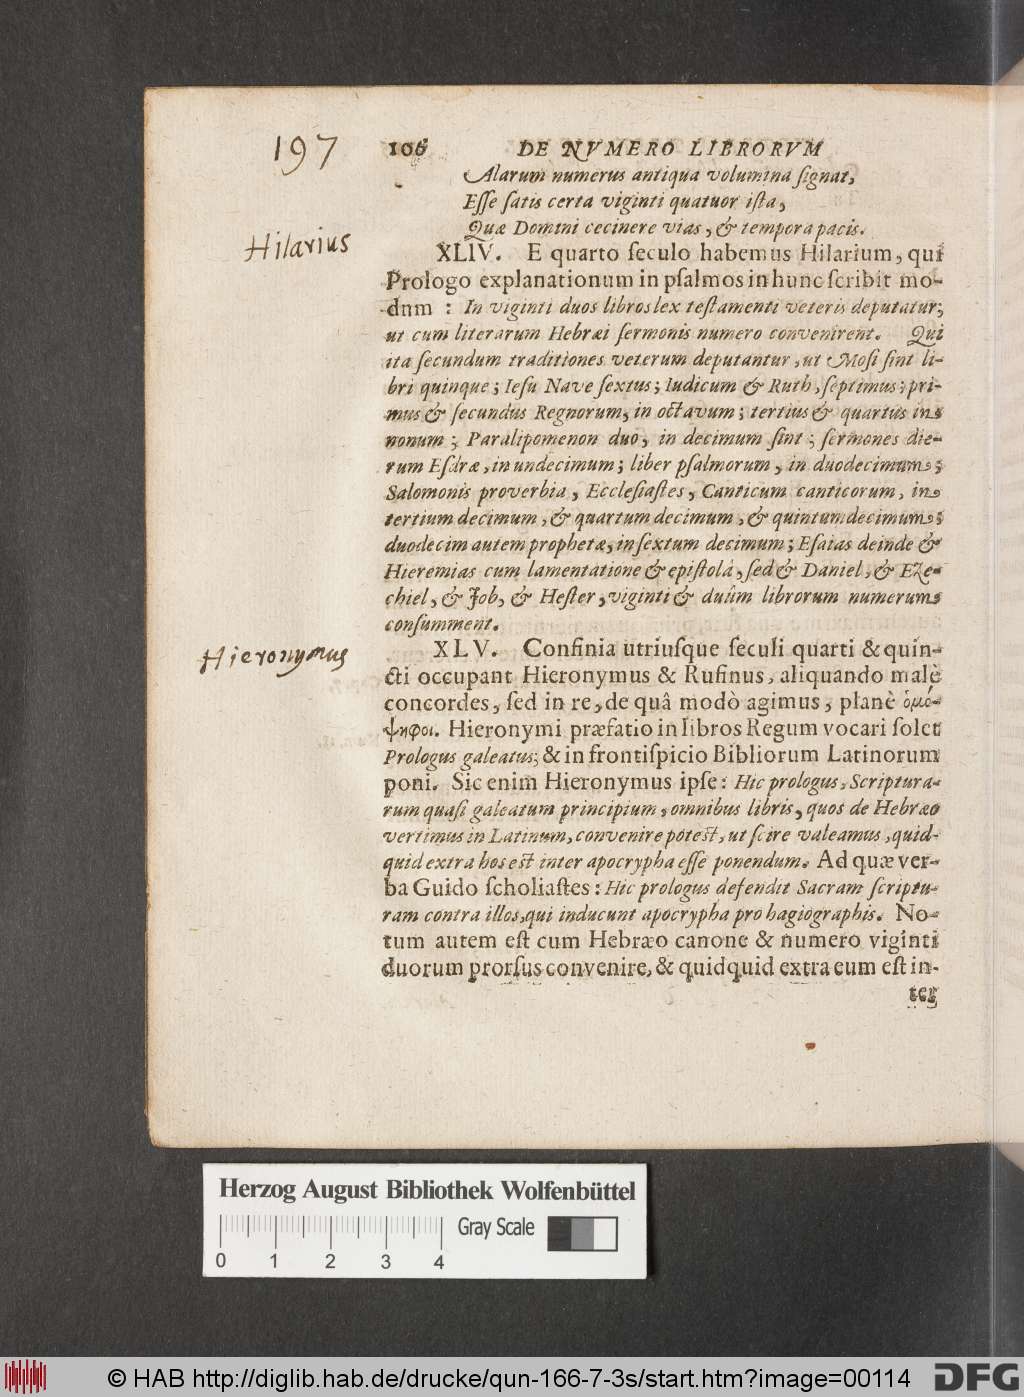 197
106 DE NVMERO LIBRORVM
Alarum numerus antiqua volumina ſignat,
Eſſe ſatis certa viginti quatuor iſta,
Quæ Domini cecinere vias, & tempora pacis.
Hilarius
XLIV. E quarto ſeculo habemus Hilarium, qui
Prologo explanationum in pſalmos in hunc ſcribit mo-
dum : In viginti duos libros lex teſtamenti veteris deputatur;
ut cum literarum Hebræi ſermonis numero convenirent. Qui
ita ſecundum traditiones veterum deputantur, ut Moſi ſint li-
bri quinque; Ieſu Nave ſextus; Iudicum & Ruth, ſeptimus; pri-
mus & ſecundus Regnorum, in octavum; tertius & quartus in
nonum; Paralipomenon duo, in decimum ſint; ſermones die-
rum Eſdræ, in undecimum; liber pſalmorum, in duodecimum;
Salomonis proverbia, Eccleſiaſtes, Canticum canticorum, in
tertium decimum, & quartum decimum, & quintum decimum;
duodecim autem prophetæ, in ſextum decimum; Eſaias deinde &
Hieremias cum lamentatione & epiſtolâ, ſed & Daniel, & Eze-
chiel, & Job, & Heſter, viginti & duûm librorum numerum
conſumment.
Hieronymus
XLV. Confinia utriuſque ſeculi quarti & quin-
cti occupant Hieronymus & Rufinus, aliquando malè
concordes, ſed in re, de quâ modò agimus, planè ὁμό-
ψηφοι. Hieronymi præfatio in libros Regum vocari ſolet
Prologus galeatus; & in frontiſpicio Bibliorum Latinorum
poni. Sic enim Hieronymus ipſe: Hic prologus, Scriptura-
rum quaſi galeatum principium, omnibus libris, quos de Hebræo
vertimus in Latinum, convenire poteſt, ut ſcire valeamus, quid-
quid extra hos eſt inter apocrypha eſſe ponendum. Ad quæ ver-
ba Guido ſcholiaſtes: Hic prologus defendit Sacram ſcriptu-
ram contra illos, qui inducunt apocrypha pro hagiographis. No-
tum autem eſt cum Hebræo canone & numero viginti
duorum prorſus convenire, & quidquid extra eum eſt in-
ter
Herzog August Bibliothek Wolfenbüttel
Gray Scale
0 1 2 3 4
© HAB http://diglib.hab.de/drucke/qun-166-7-3s/start.htm?image=00114
DFG